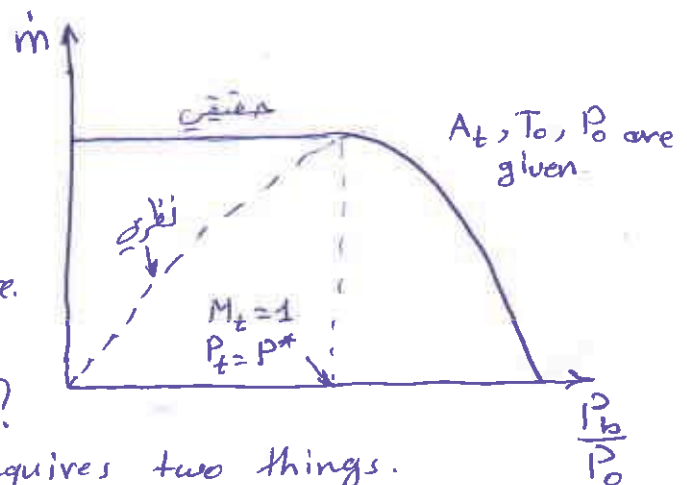 ṁ
حقيقي
A_t, T_o, P_o are
given
نظري
e.
M_t = 1
P_t = P*
?
P_b / P_o
quires two things.